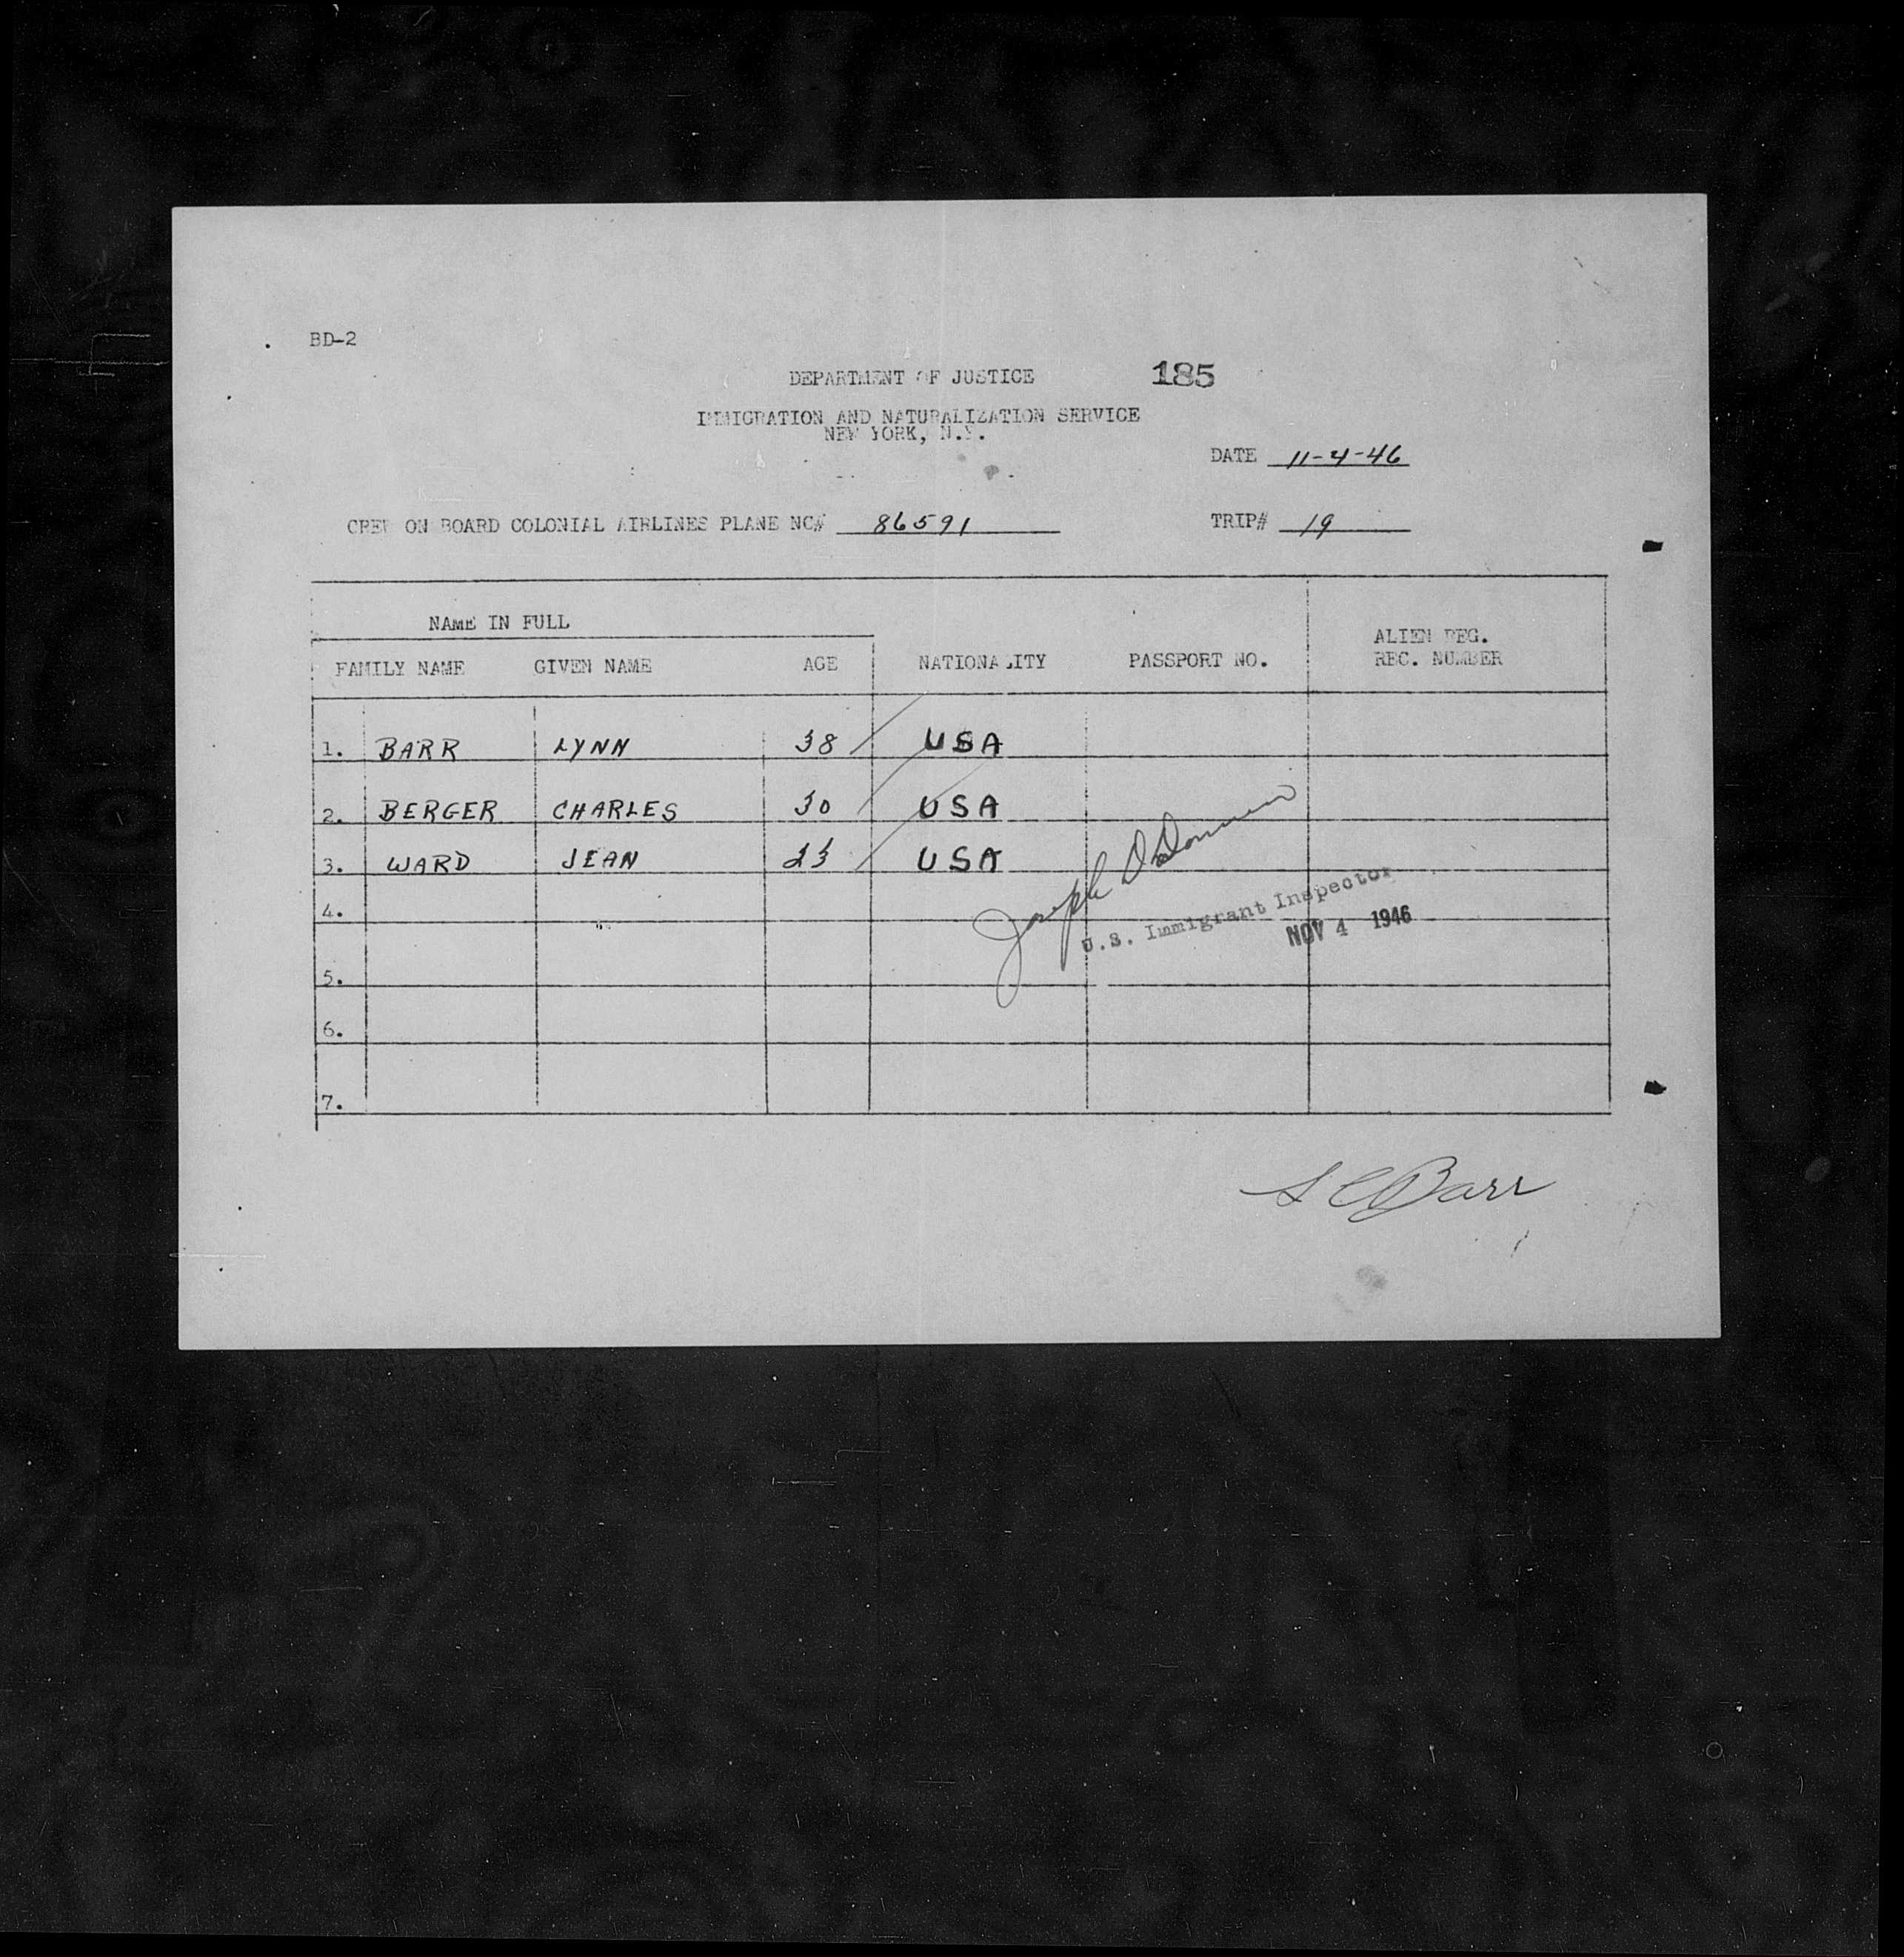 BD-2
DEPARTMENT OF JUSTICE 185
IMMIGRATION AND NATURALIZATION SERVICE
NEW YORK, N.Y.
DATE 11-4-46
CREW ON BOARD COLONIAL AIRLINES PLANE NC# 86591 TRIP# 19
NAME IN FULL
ALIEN REG.
FAMILY NAME GIVEN NAME AGE NATIONALITY PASSPORT NO. REC. NUMBER
1. BARR LYNN 38 USA
2. BERGER CHARLES 30 USA
3. WARD JEAN 23 USA
Joseph
U.S. Immigrant Inspector
4.
NOV 4 1946
5.
6.
7.
Barr